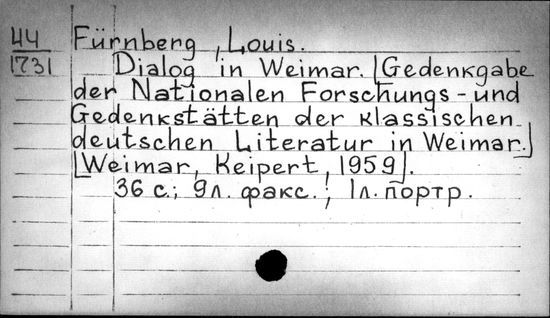 44 Fürnberg, Louis.
1731 Dialog in Weimar. [Gedenkgabe
der Nationalen Forschungs- und
Gedenkstätten der klassischen
deutschen Literatur in Weimar.]
[Weimar, Keipert, 1959].
36 с.; 9л. факс.; 1л. портр.